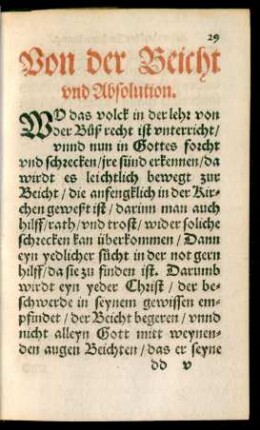 29
Von der Beicht
vnd Absolution.
WO das volck in der lehr von
der Buͤß recht ist vnterricht/
vnnd nun in Gottes forcht
vnd schrecken/jre sünd erkennen/da
wirdt es leichtlich bewegt zur
Beicht/die anfengklich in der Kir-
chen gewest ist/darinn man auch
hilff/rath/vnd trost/wider soliche
schrecken kan überkommen/Dann
eyn yedlicher sücht in der not gern
hilff/da sie zu finden ist. Darumb
wirdt eyn yeder Christ/der be-
schwerde in seynem gewissen em-
pfindet/der Beicht begeren/vnnd
nicht alleyn Gott mitt weynen-
den augen Beichten/das er seyne
dd v